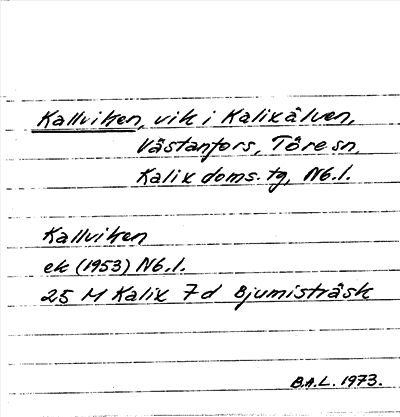 Kallviken, vik i Kalixälven,
Västanfors, Töre sn
Kalix doms. tg, Nb. l.
Kallviken
ek (1953) Nb. l.
25 M Kalix 7d Bjumisträsk
B.A.L. 1973.